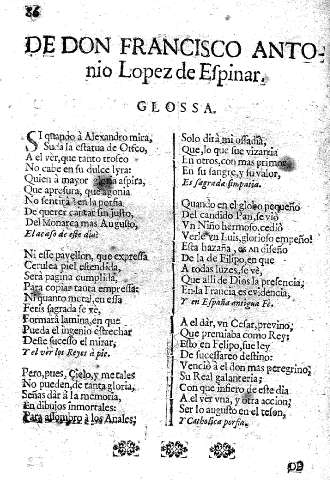 86
DE DON FRANCISCO ANTO-
nio Lopez de Espinar.
GLOSSA.
SI quando à Alexandro mira,
Suda la estatua de Orfeo,
A el vèr, que tanto trofeo
No cabe en su dulce lyra:
Quien à mayor gloria aspira,
Que apresura, que agonia
No sentirà en la porfia
De querer cantar sin susto,
Del Monarca mas Augusto,
El acaso de este dia?
Ni esse pavellon, que expressa
Cerulea piel estendida,
Serà pagina cumplida,
Para copiar tanta empressa:
Ni quanto metal, en essa
Feris sagrada se vè,
Formarà lamina, en que
Pueda el ingenio estrechar
Deste sucesso el mirar,
Y el vèr los Reyes à pie.
Pero, pues, Cielo, y metales
No pueden, de tanta gloria,
Señas dàr à la memoria,
En dibujos inmortales:
Para assombro à los Anales;
Solo dirà mi ossadia,
Que, lo que fue vizarria
En otros, con mas primor
En su sangre, y su valor,
Es sagrada simpatia.
Quando en el globo pequeño
Del candido Pan, se viò
Vn Niño hermoso, cediò
Verle vn Luis, glorioso empeño!
Esta hazaña, es vn diseño
De la de Filipo, en que
A todas luzes, se vè,
Que alli de Dios la presencia,
En la Francia es evidencia,
Y en España antigua Fè.
A el dàr, vn Cesar, previno,
Que premiaba como Rey:
Esto en Felipo, fue ley
De successareo destino:
Venciò à el don mas peregrino;
Su Real galanteria;
Con que infiero de este dia
A el ver vna, y otra accion;
Ser lo augusto en el teson,
Y Catholica porfia.
DE